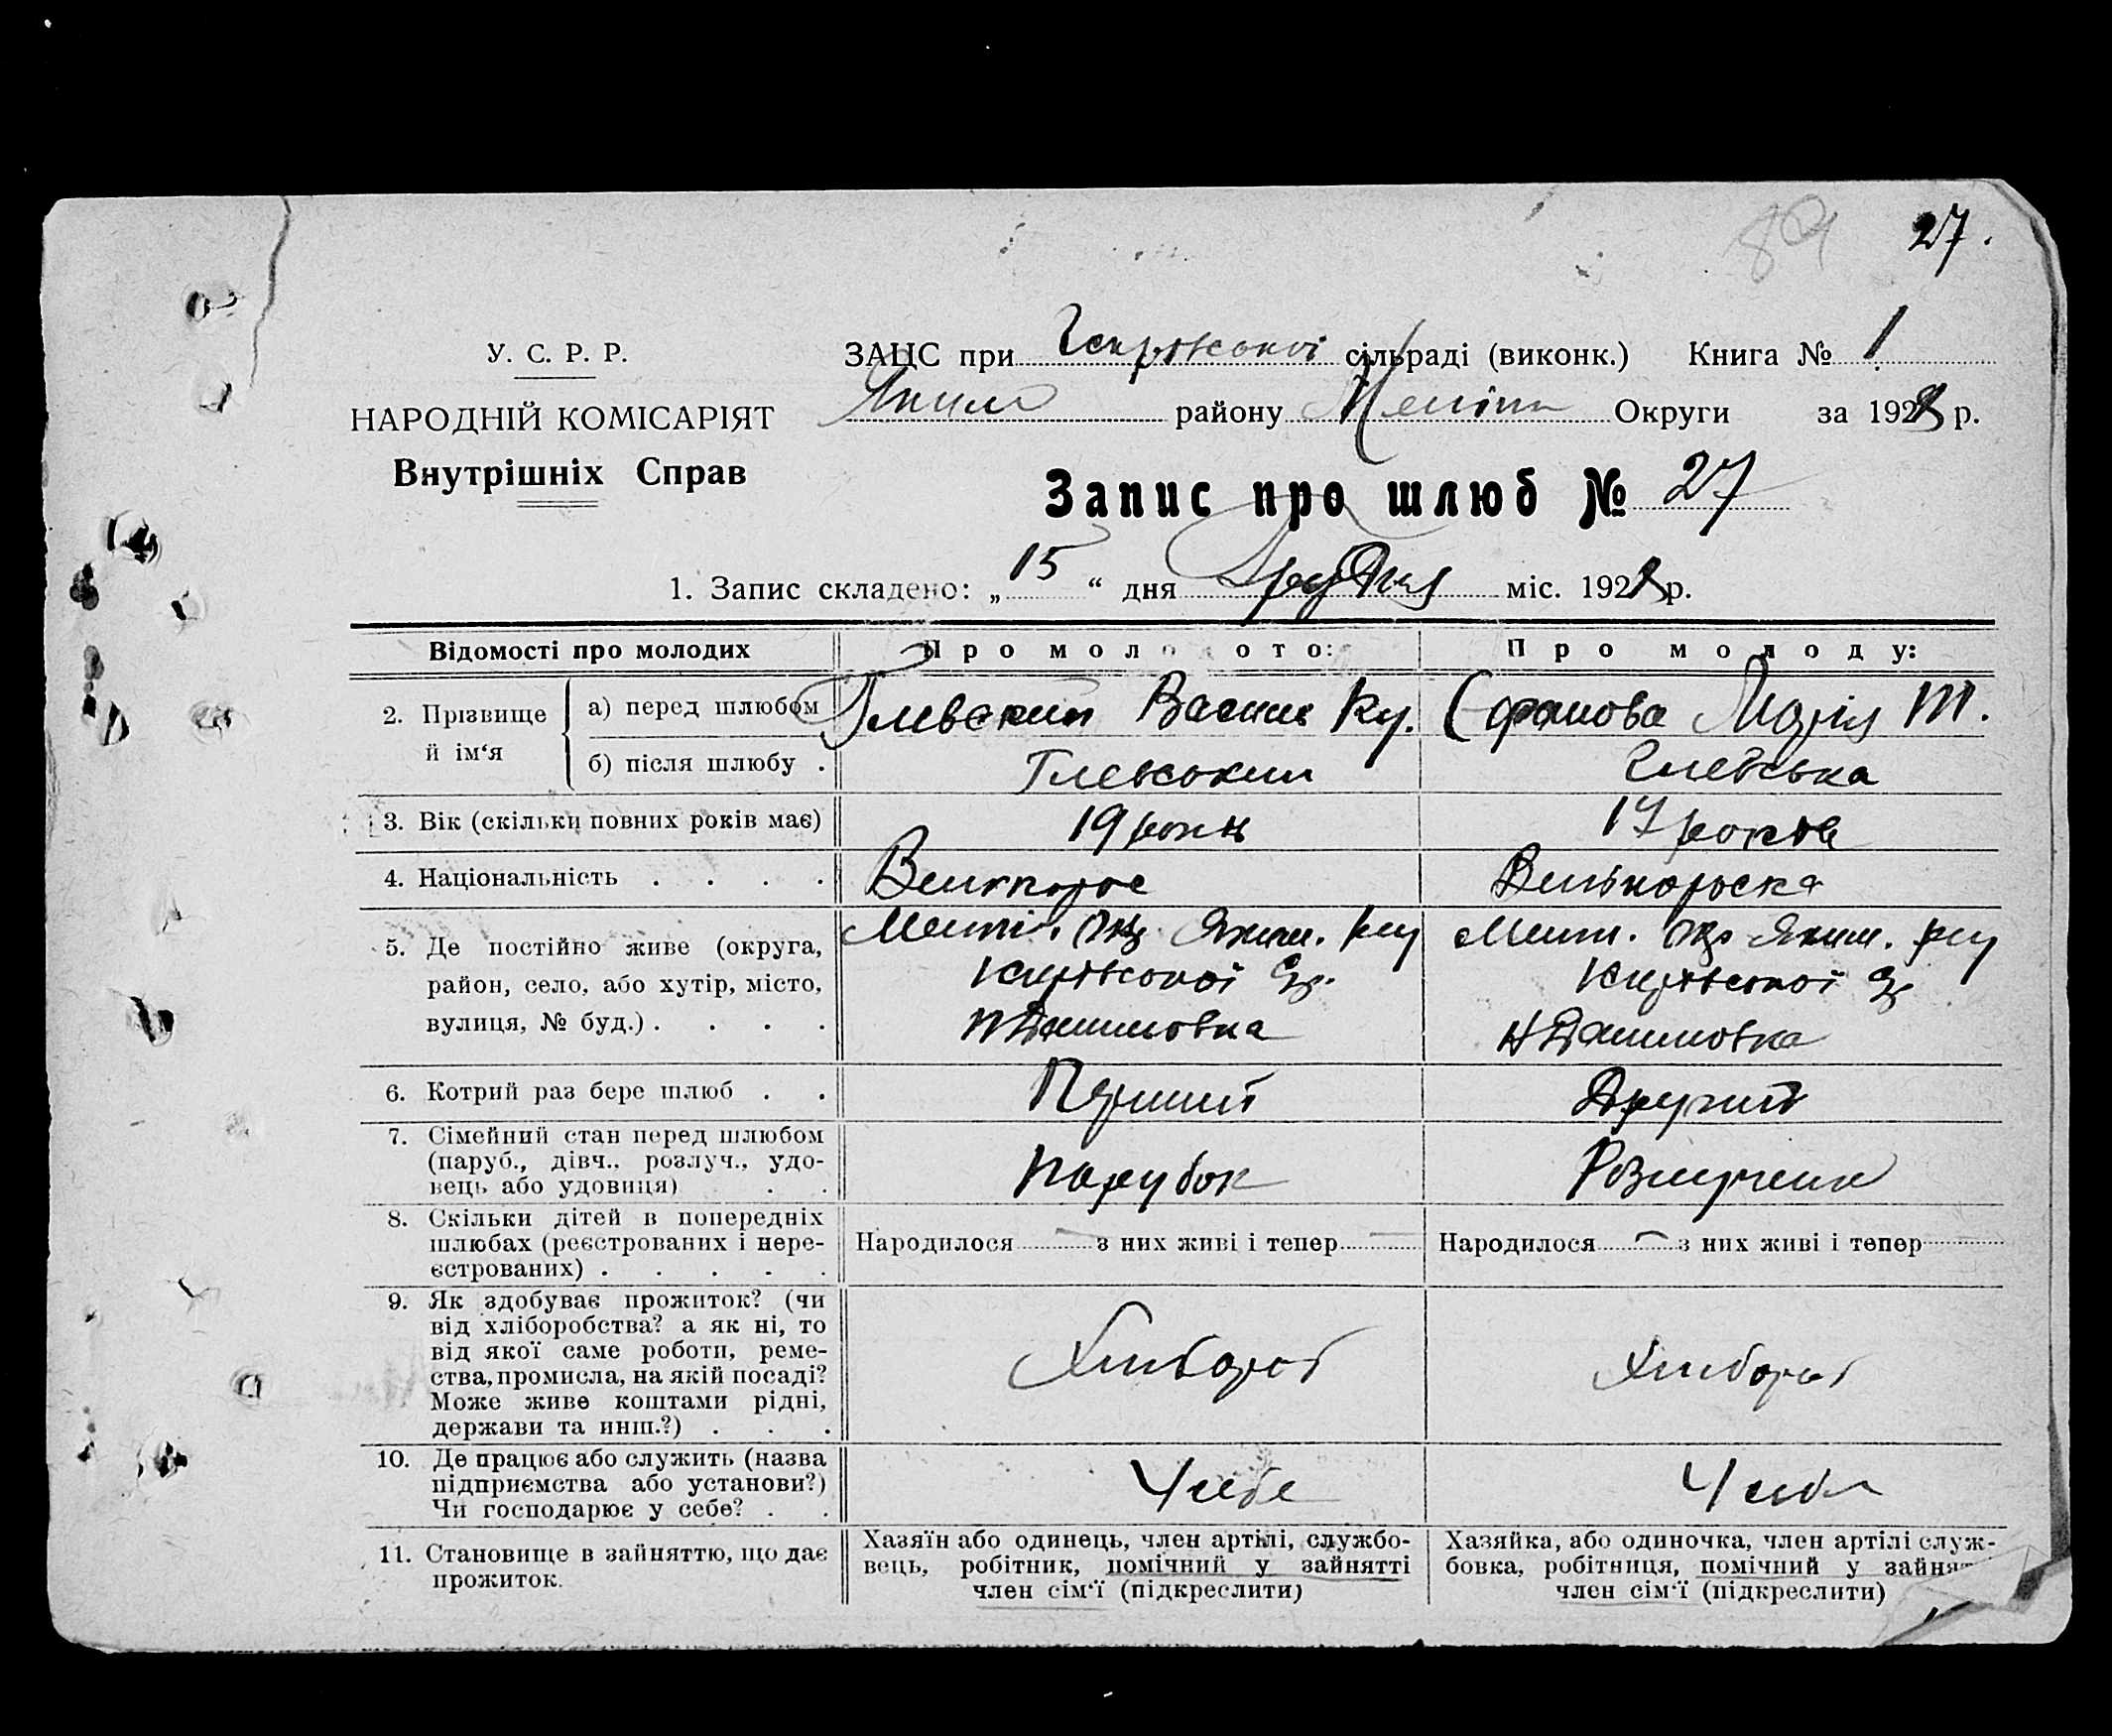 89 27.
У. С. Р. Р.
НАРОДНІЙ КОМІСАРІЯТ
Внутрішніх Справ
ЗАЦС при сільраді (виконк.) Книга № 1
Яким району Меліт Округи за 1928 р.
Запис про шлюб № 27
1. Запис складено: „ 15 “ дня Грудня міс. 1928 р.
Відомості про молодих
Про молодого:
Про молоду:
2. Прізвище й ім‘я
а) перед шлюбом
Глевский Василь Ку.
Марія Т.
б) після шлюбу .
Глевський
Глевська
3. Вік (скільки повних років має)
19 роки
17 років
4. Національність . . . .
Великорос
Великороска
5. Де постійно живе (округа,
район, село, або хутір, місто,
вулиця, № буд.) . . . .
Меліт. Окр Яким. р-ну
Кирівської
Меліт. Окр Яким. р-ну
Кирівської
6. Котрий раз бере шлюб . .
Перший
Другий
7. Сімейний стан перед шлюбом
(паруб., дівч., розлуч., удо-
вець або удовиця) . .
Парубок
Розлучена
8. Скільки дітей в попередніх
шлюбах (реєстрованих і нере-
єстрованих) . . . . .
Народилося — з них живі і тепер —
Народилося — з них живі і тепер
9. Як здобуває прожиток? (чи
від хліборобства? а як ні, то
від якої саме роботи, реме-
ства, промисла, на якій посаді?
Може живе коштами рідні,
держави та инш.?) . . .
Хлібороб
Хлібороб
10. Де працює або служить (назва
підприємства або установи?)
Чи господарює у себе? . .
У себе
У себе
11. Становище в зайняттю, що дає
прожиток.
Хазяїн або одинець, член артілі, службо-
вець, робітник, помічний у зайнятті
член сім‘ї (підкреслити)
Хазяйка, або одиночка, член артілі служ-
бовка, робітниця, помічний у
член сім‘ї (підкреслити)